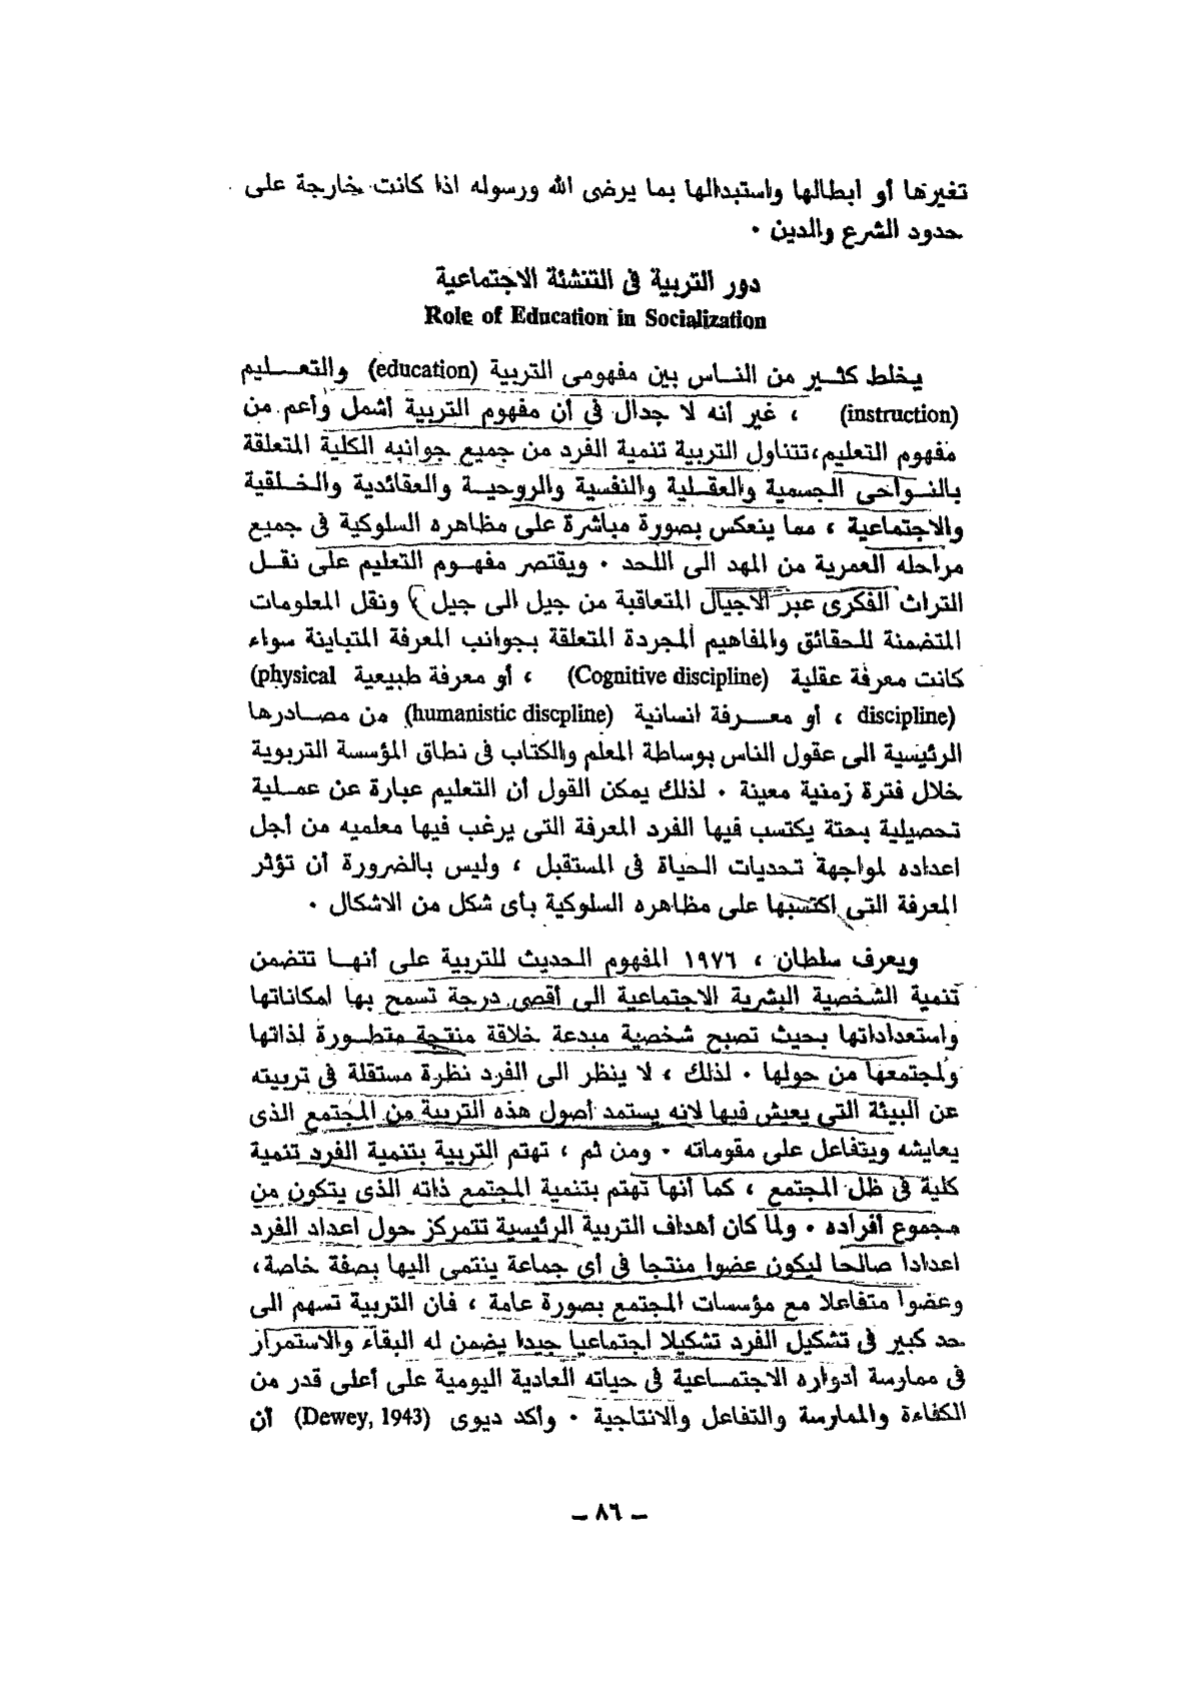 تغيرها أو ابطالها واستبدالها بما يرضى الله ورسوله اذا كانت خارجة على
حدود الشرع والدين ٠
دور التربية فى التنشئة الاجتماعية
Role of Education in Socialization
يخلط كثير من الناس بين مفهومى التربية (education) والتعليم
(instruction) ، غير أنه لا جدال فى أن مفهوم التربية أشمل وأعم من
مفهوم التعليم، تتناول التربية تنمية الفرد من جميع جوانبه الكلية المتعلقة
بالنواحى الجسمية والعقلية والنفسية والروحية والعقائدية والخلقية
والاجتماعية ، مما ينعكس بصورة مباشرة على مظاهره السلوكية فى جميع
مراحله العمرية من المهد الى اللحد ٠ ويقتصر مفهوم التعليم على نقل
التراث الفكرى عبر الاجيال المتعاقبة من جيل الى جيل ، ونقل المعلومات
المتضمنة للحقائق والمفاهيم المجردة المتعلقة بجوانب المعرفة المتباينة سواء
كانت معرفة عقلية (Cognitive discipline) ، أو معرفة طبيعية (physical
discipline) ، أو معرفة انسانية (humanistic discpline) من مصادرها
الرئيسية الى عقول الناس بوساطة المعلم والكتاب فى نطاق المؤسسة التربوية
خلال فترة زمنية معينة ٠ لذلك يمكن القول أن التعليم عبارة عن عملية
تحصيلية بحتة يكتسب فيها الفرد المعرفة التى يرغب فيها معلميه من أجل
اعداده لمواجهة تحديات الحياة فى المستقبل ، وليس بالضرورة أن تؤثر
المعرفة التى اكتسبها على مظاهره السلوكية بأى شكل من الاشكال ٠
ويعرف سلطان ، ١٩٧٦ المفهوم الحديث للتربية على أنها تتضمن
تنمية الشخصية البشرية الاجتماعية الى أقصى درجة تسمح بها امكاناتها
واستعداداتها بحيث تصبح شخصية مبدعة خلاقة منتجة متطورة لذاتها
ولمجتمعها من حولها ٠ لذلك ، لا ينظر الى الفرد نظرة مستقلة فى تربيته
عن البيئة التى يعيش فيها لانه يستمد أصول هذه التربية من المجتمع الذى
يعايشه ويتفاعل على مقوماته ٠ ومن ثم ، تهتم التربية بتنمية الفرد تنمية
كلية فى ظل المجتمع ، كما أنها تهتم بتنمية المجتمع ذاته الذى يتكون من
مجموع أفراده ٠ ولما كان أهداف التربية الرئيسية تتمركز حول اعداد الفرد
اعدادا صالحا ليكون عضوا منتجا فى أى جماعة ينتمى اليها بصفة خاصة ،
وعضوا متفاعلا مع مؤسسات المجتمع بصورة عامة ، فان التربية تسهم الى
حد كبير فى تشكيل الفرد تشكيلا اجتماعيا جيدا يضمن له البقاء والاستمرار
فى ممارسة أدواره الاجتماعية فى حياته العادية اليومية على أعلى قدر من
الكفاءة والممارسة والتفاعل والانتاجية ٠ وأكد ديوى (Dewey, 1943) أن
– ٨٦ –